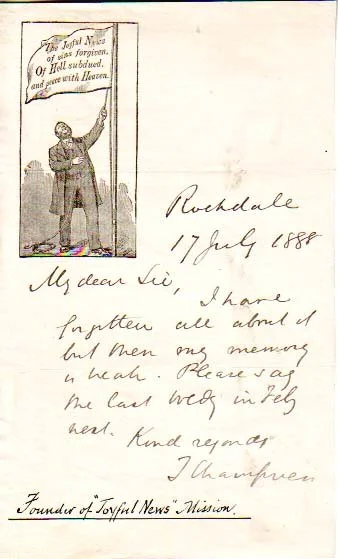 The Joyful News
of sins forgiven,
Of Hell subdued,
and peace with Heaven.
Rochdale
17 July 1888
My dear Sir,
I have
forgotten all about it
but then my memory
is weak. Please say
the last Wedy in Feby
next. Kind regards
T Champness
Founder of "Joyful News" Mission.